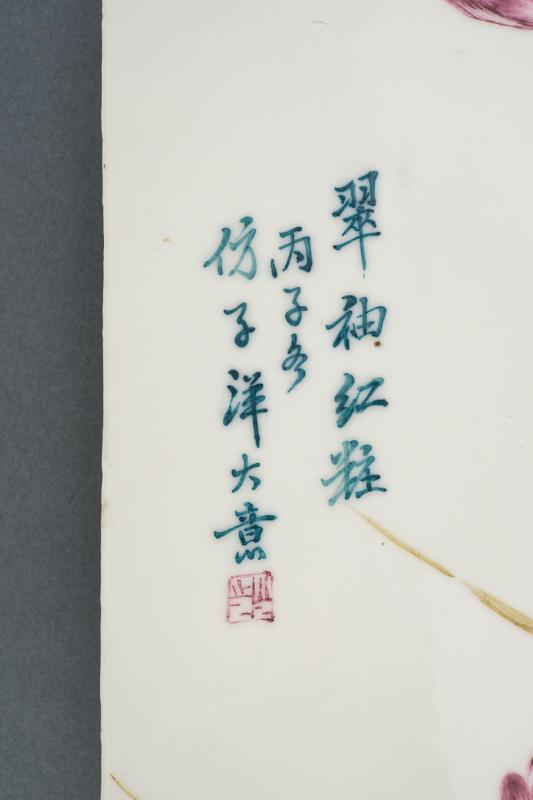 翠袖红粧
丙子冬
仿子洋大意